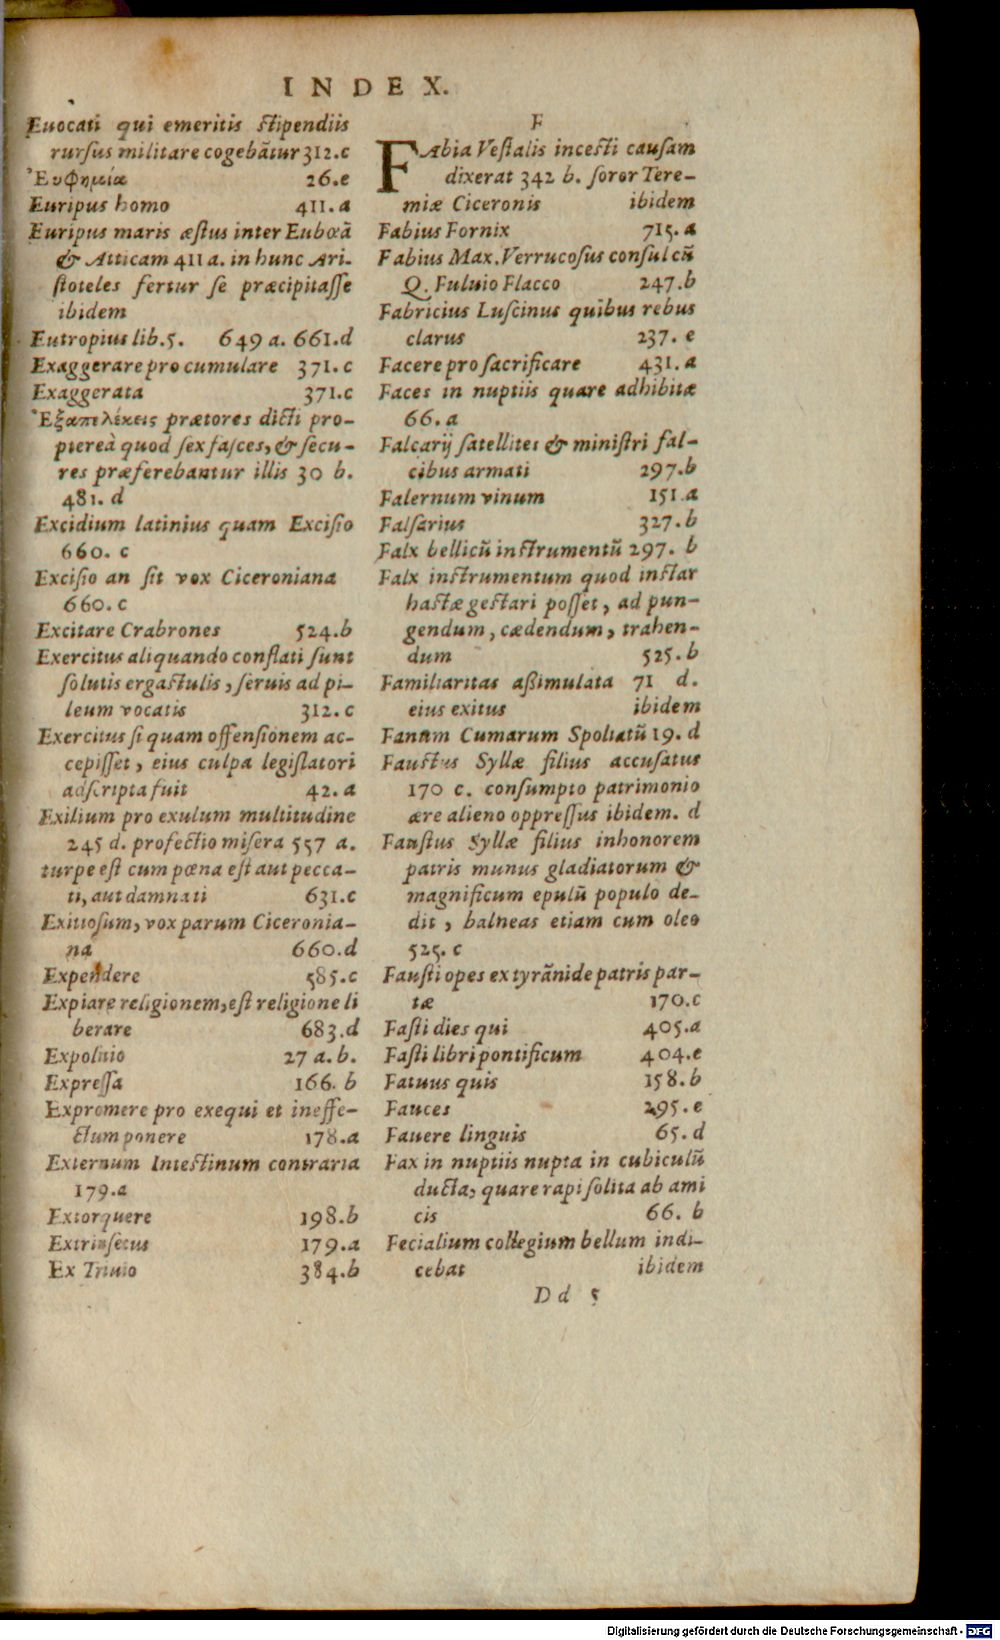 INDEX.
Euocati qui emeritis stipendiis
rursus militare cogebātur 312.c
Ἐυφημία 26.e
Euripus homo 411.a
Euripus maris æstus inter Eubœā
& Atticam 411 a. in hunc Ari-
stoteles fertur se præcipitasse
ibidem
Eutropius lib.5. 649 a. 661.d
Exaggerare pro cumulare 371.c
Exaggerata 371.c
Ἑξαπελέκεις prætores dicti pro-
ptereà quod sex fasces, & secu-
res præferebantur illis 30 b.
481. d
Excidium latinius quam Excisio
660. c
Excisio an sit vox Ciceroniana
660.c
Excitare Crabrones 524.b
Exercitus aliquando conflati sunt
solutis ergastulis, seruis ad pi-
leum vocatis 312.c
Exercitus si quam offensionem ac-
cepisset, eius culpa legislatori
adscripta fuit 42.a
Exilium pro exulum multitudine
245 d. profectio misera 557 a.
turpe est cum pœna est aut pecca-
ti, aut damnati 631.c
Exitiosum, vox parum Ciceronia-
na 660.d
Expendere 585.c
Expiare religionem, est religione li
berare 683.d
Expoliuio 27 a.b.
Expressa 166. b
Expromere pro exequi et in effe-
ctum ponere 178.a
Externum Intestinum contraria
179.a
Extorquere 198.b
Extrinsecus 179.a
Ex Triuio 384.b
F
FAbia Vestalis incesti causam
dixerat 342 b. soror Tere-
miæ Ciceronis ibidem
Fabius Fornix 715.a
Fabius Max. Verrucosus consul cū
Q. Fuluio Flacco 247.b
Fabricius Luscinus quibus rebus
clarus 237. e
Facere pro sacrificare 431.a
Faces in nuptiis quare adhibitæ
66. a
Falcarij satellites & ministri fal-
cibus armati 297.b
Falernum vinum 151.a
Falsarius 327.b
Falx bellicū instrumentū 297. b
Falx instrumentum quod instar
hastæ gestari posset, ad pun-
gendum, cædendum, trahen-
dum 525.b
Familiaritas assimulata 71 d.
eius exitus ibidem
Fanum Cumarum Spoliatū 19. d
Faustus Syllæ filius accusatus
170 c. consumpto patrimonio
ære alieno oppressus ibidem. d
Faustus Syllæ filius inhonorem
patris munus gladiatorum &
magnificum epulū populo de-
dit, balneas etiam cum oleo
525. c
Fausti opes ex tyrānide patris par-
tæ 170.c
Fasti dies qui 405.a
Fasti libri pontificum 404.e
Fatuus quis 158.b
Fauces 295.e
Fauere linguis 65. d
Fax in nuptiis nupta in cubiculū
ducta, quare rapi solita ab ami
cis 66. b
Fecialium collegium bellum indi-
cebat ibidem
Dd 5
Digitalisierung gefördert durch die Deutsche Forschungsgemeinschaft - DFG